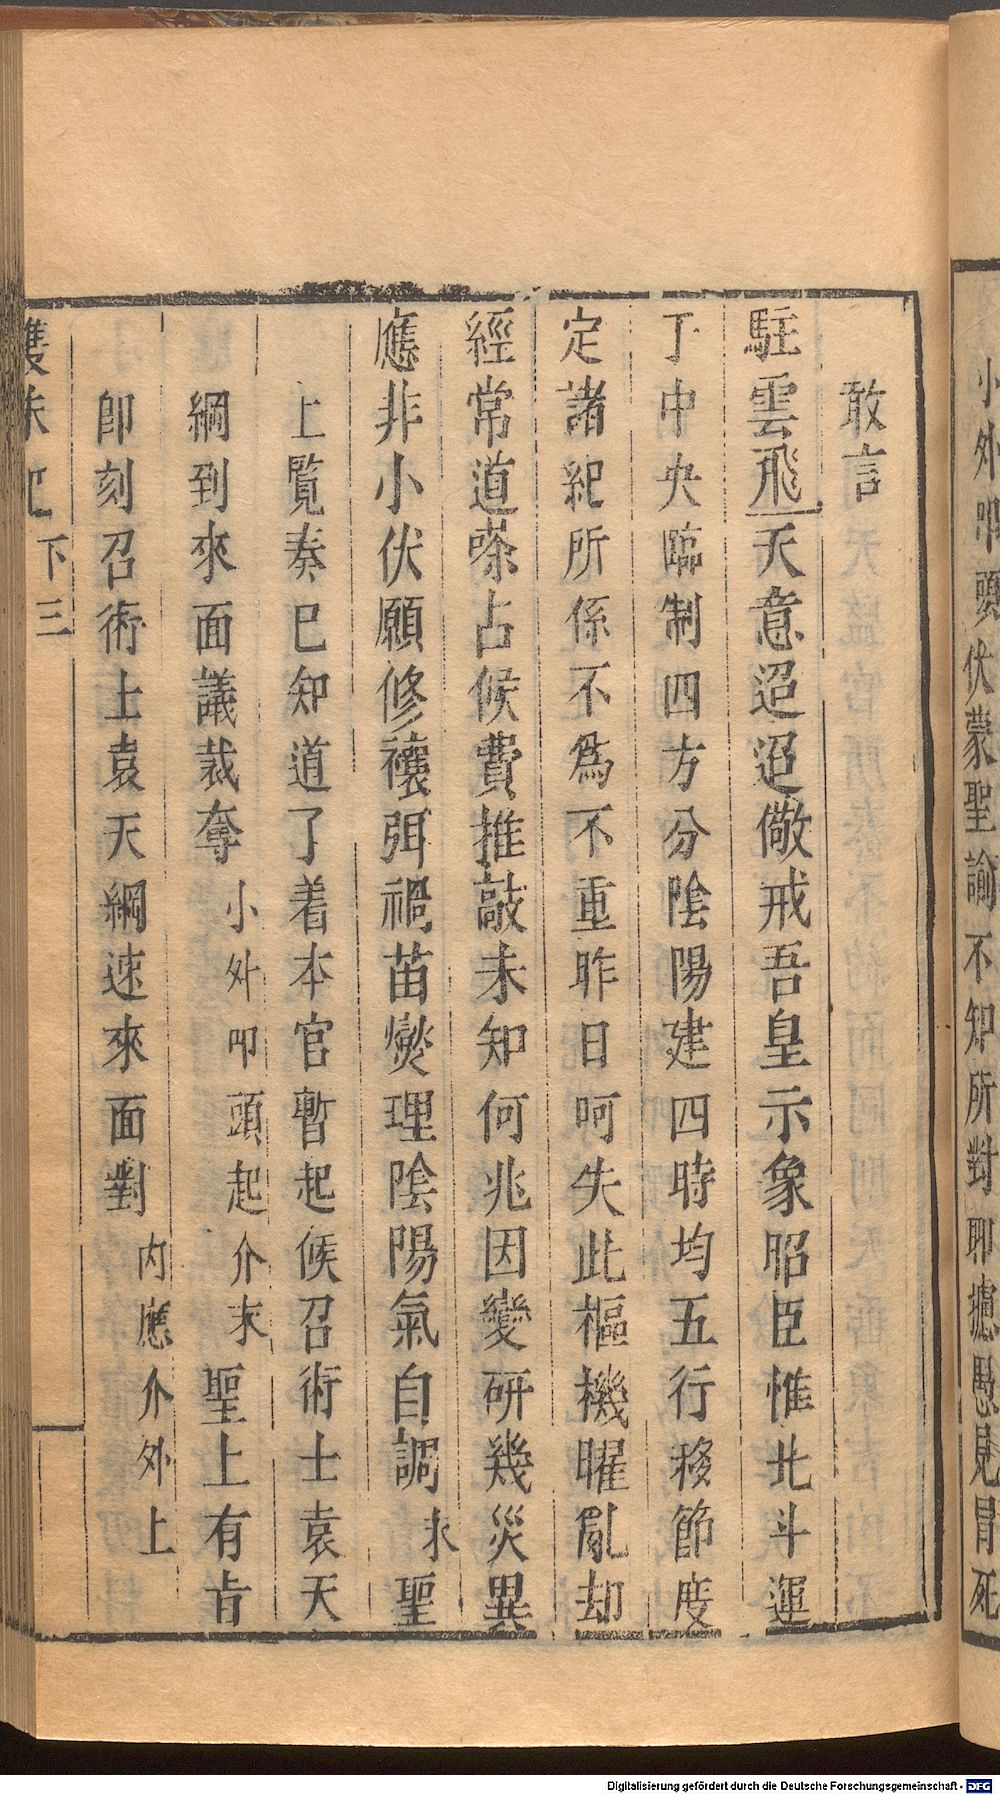 小外叩頭伏蒙聖諭不知所對聊攄愚見冒死
敢言
駐雲飛天意迢迢儆戒吾皇示象昭臣惟北斗運
于中央臨制四方分陰陽建四時均五行移節度
定諸紀所係不為不重昨日呵失此樞機曜亂却
經常道嗏占候費推敲未知何兆因變研幾災異
應非小伏願修禳弭禍苗燮理陰陽氣自調末聖
上覽奏已知道了着本官暫起候召術士袁天
綱到來面議裁奪小外叩頭起介末聖上有旨
即刻召術士袁天綱速來面對內應介外上
雙朱記
下三
Digitalisierung gefördert durch die Deutsche Forschungsgemeinschaft - DFG